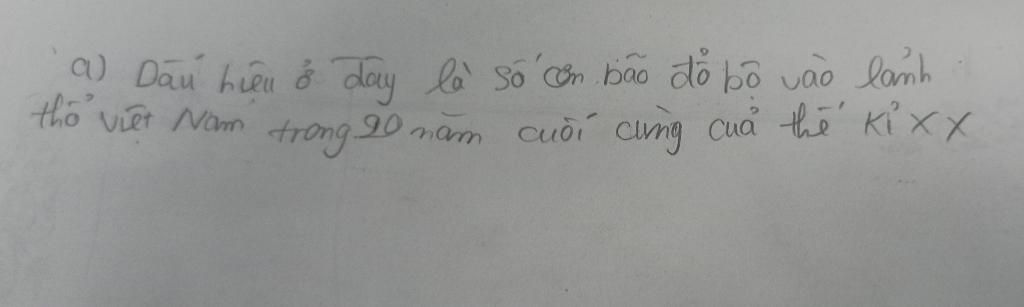 a) Dấu hiệu ở đây là số cơn bão đổ bộ vào lảnh
thổ việt Nam trong 20 năm cuối cùng cuả thế kỉ XX